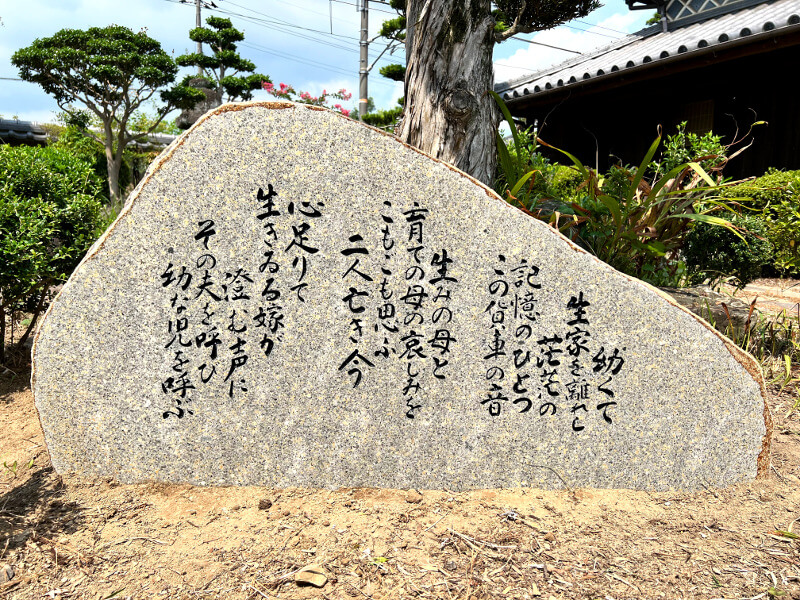 幼くて
生家を離れし
茫茫の
記憶のひとつ
この貨車の音
生みの母と
育ての母の哀しみを
こもごも思ふ
二人亡き今
心足りて
生きゐる嫁が
澄む声に
その夫を呼び
幼な児を呼ぶ